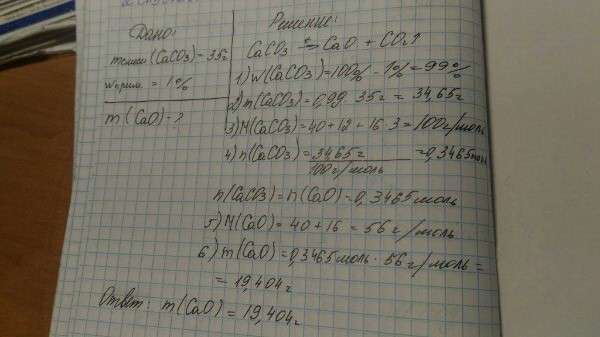 Дано:
m смеси (CaCO3) - 35г
wприм. = 1%
m (CaO) - ?
Решение:
CaCO3 ⇄ CaO + CO2↑
1) w(CaCO3)=100% - 1% = 99%
2) m(CaCO3)=0,99 · 35г = 34,65г
3) M(CaCO3)=40+12+16·3=100г/моль
4) n(CaCO3) = 34,65г / 100г/моль =0,3465моль
n(CaCO3)=n(CaO)=0,3465моль
5) M(CaO) = 40+16 = 56 г/моль
6) m(CaO)=0,3465моль · 56 г/моль =
= 19,404г
Ответ: m(CaO) = 19,404г